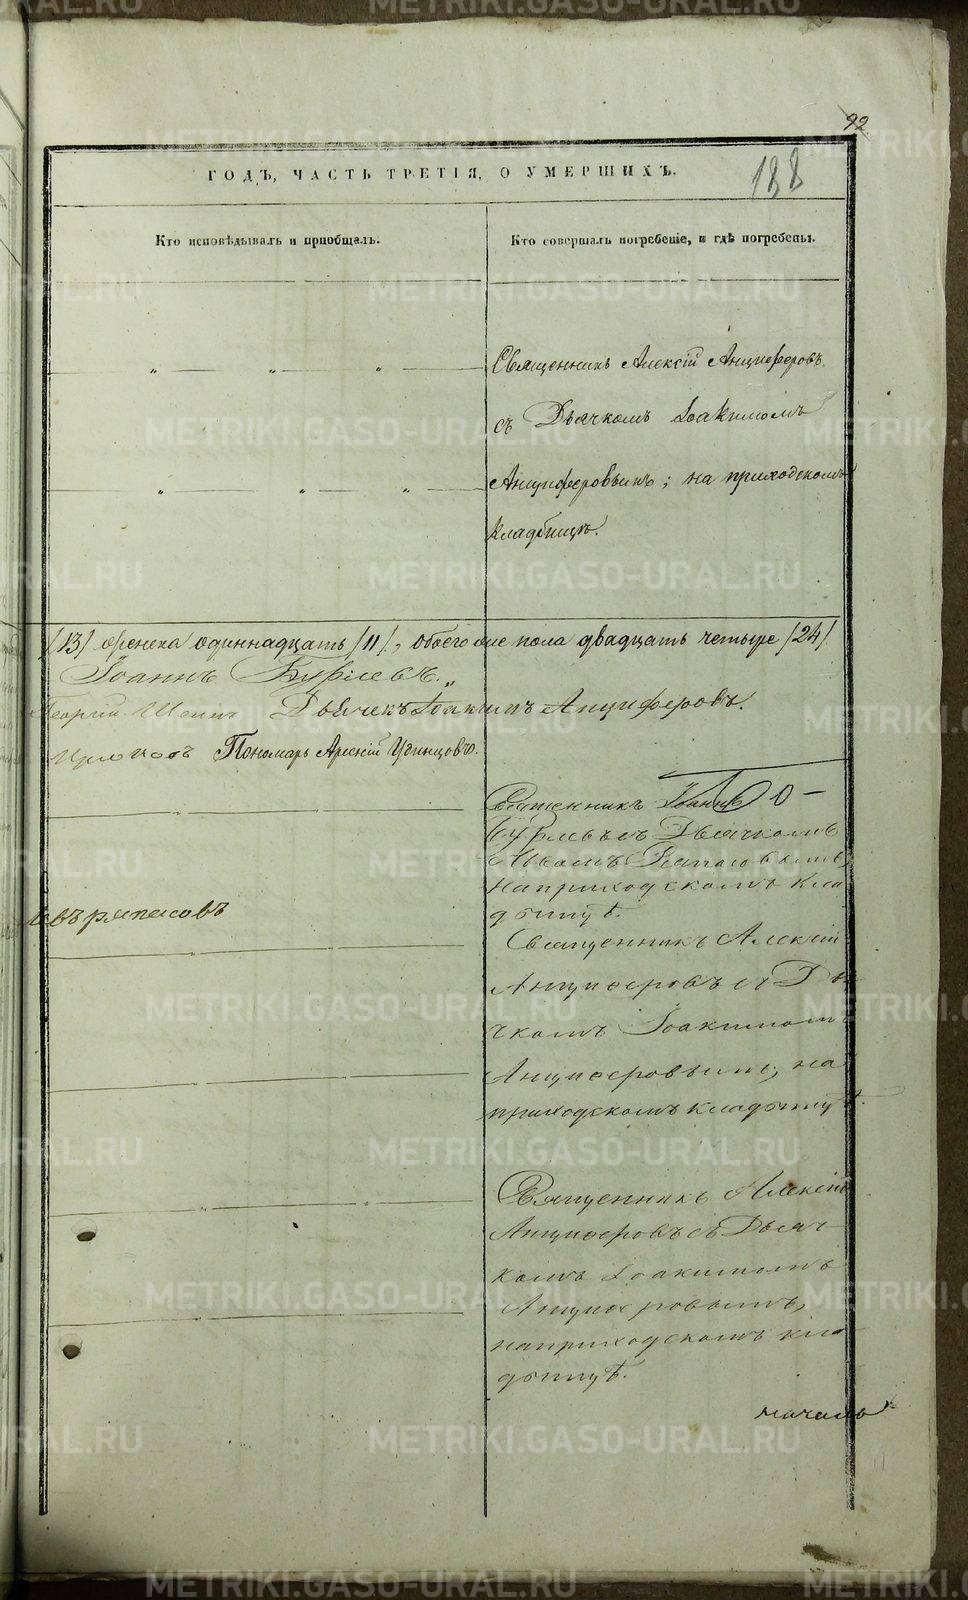 92
188
ГОДЪ, ЧАСТЬ ТРЕТІЯ, О УМЕРШИХЪ.
Кто исповѣдывалъ и пріобщалъ.
Кто совершалъ погребеніе, и гдѣ погребены.
Священникъ Алексій Анциферовъ
съ Дьячкомъ Іоакимомъ
Анциферовымъ; на приходскомъ
кладбищѣ.
/13/ женска одиннадцать /11/, обоего же пола двадцать четыре /24/
Іоаннъ Бурлевъ.
Георгій Дьячекъ Іоакимъ Анциферовъ.
Пономарь Арсеній Удинцовъ.
Священникъ Іоаннъ
Бурлевъ съ Дьячкомъ
на приходскомъ кла
дбищѣ.
Священникъ Алексій
Анциферовъ съ Дья
чкомъ Іоакимомъ
Анциферовымъ, на
приходскомъ кладбищѣ.
Священникъ Алексій
Анциферовъ съ Дьяч
комъ Іоакимомъ
Анциферовымъ,
на приходскомъ кла
дбищѣ.
METRIKI.GASO-URAL.RU